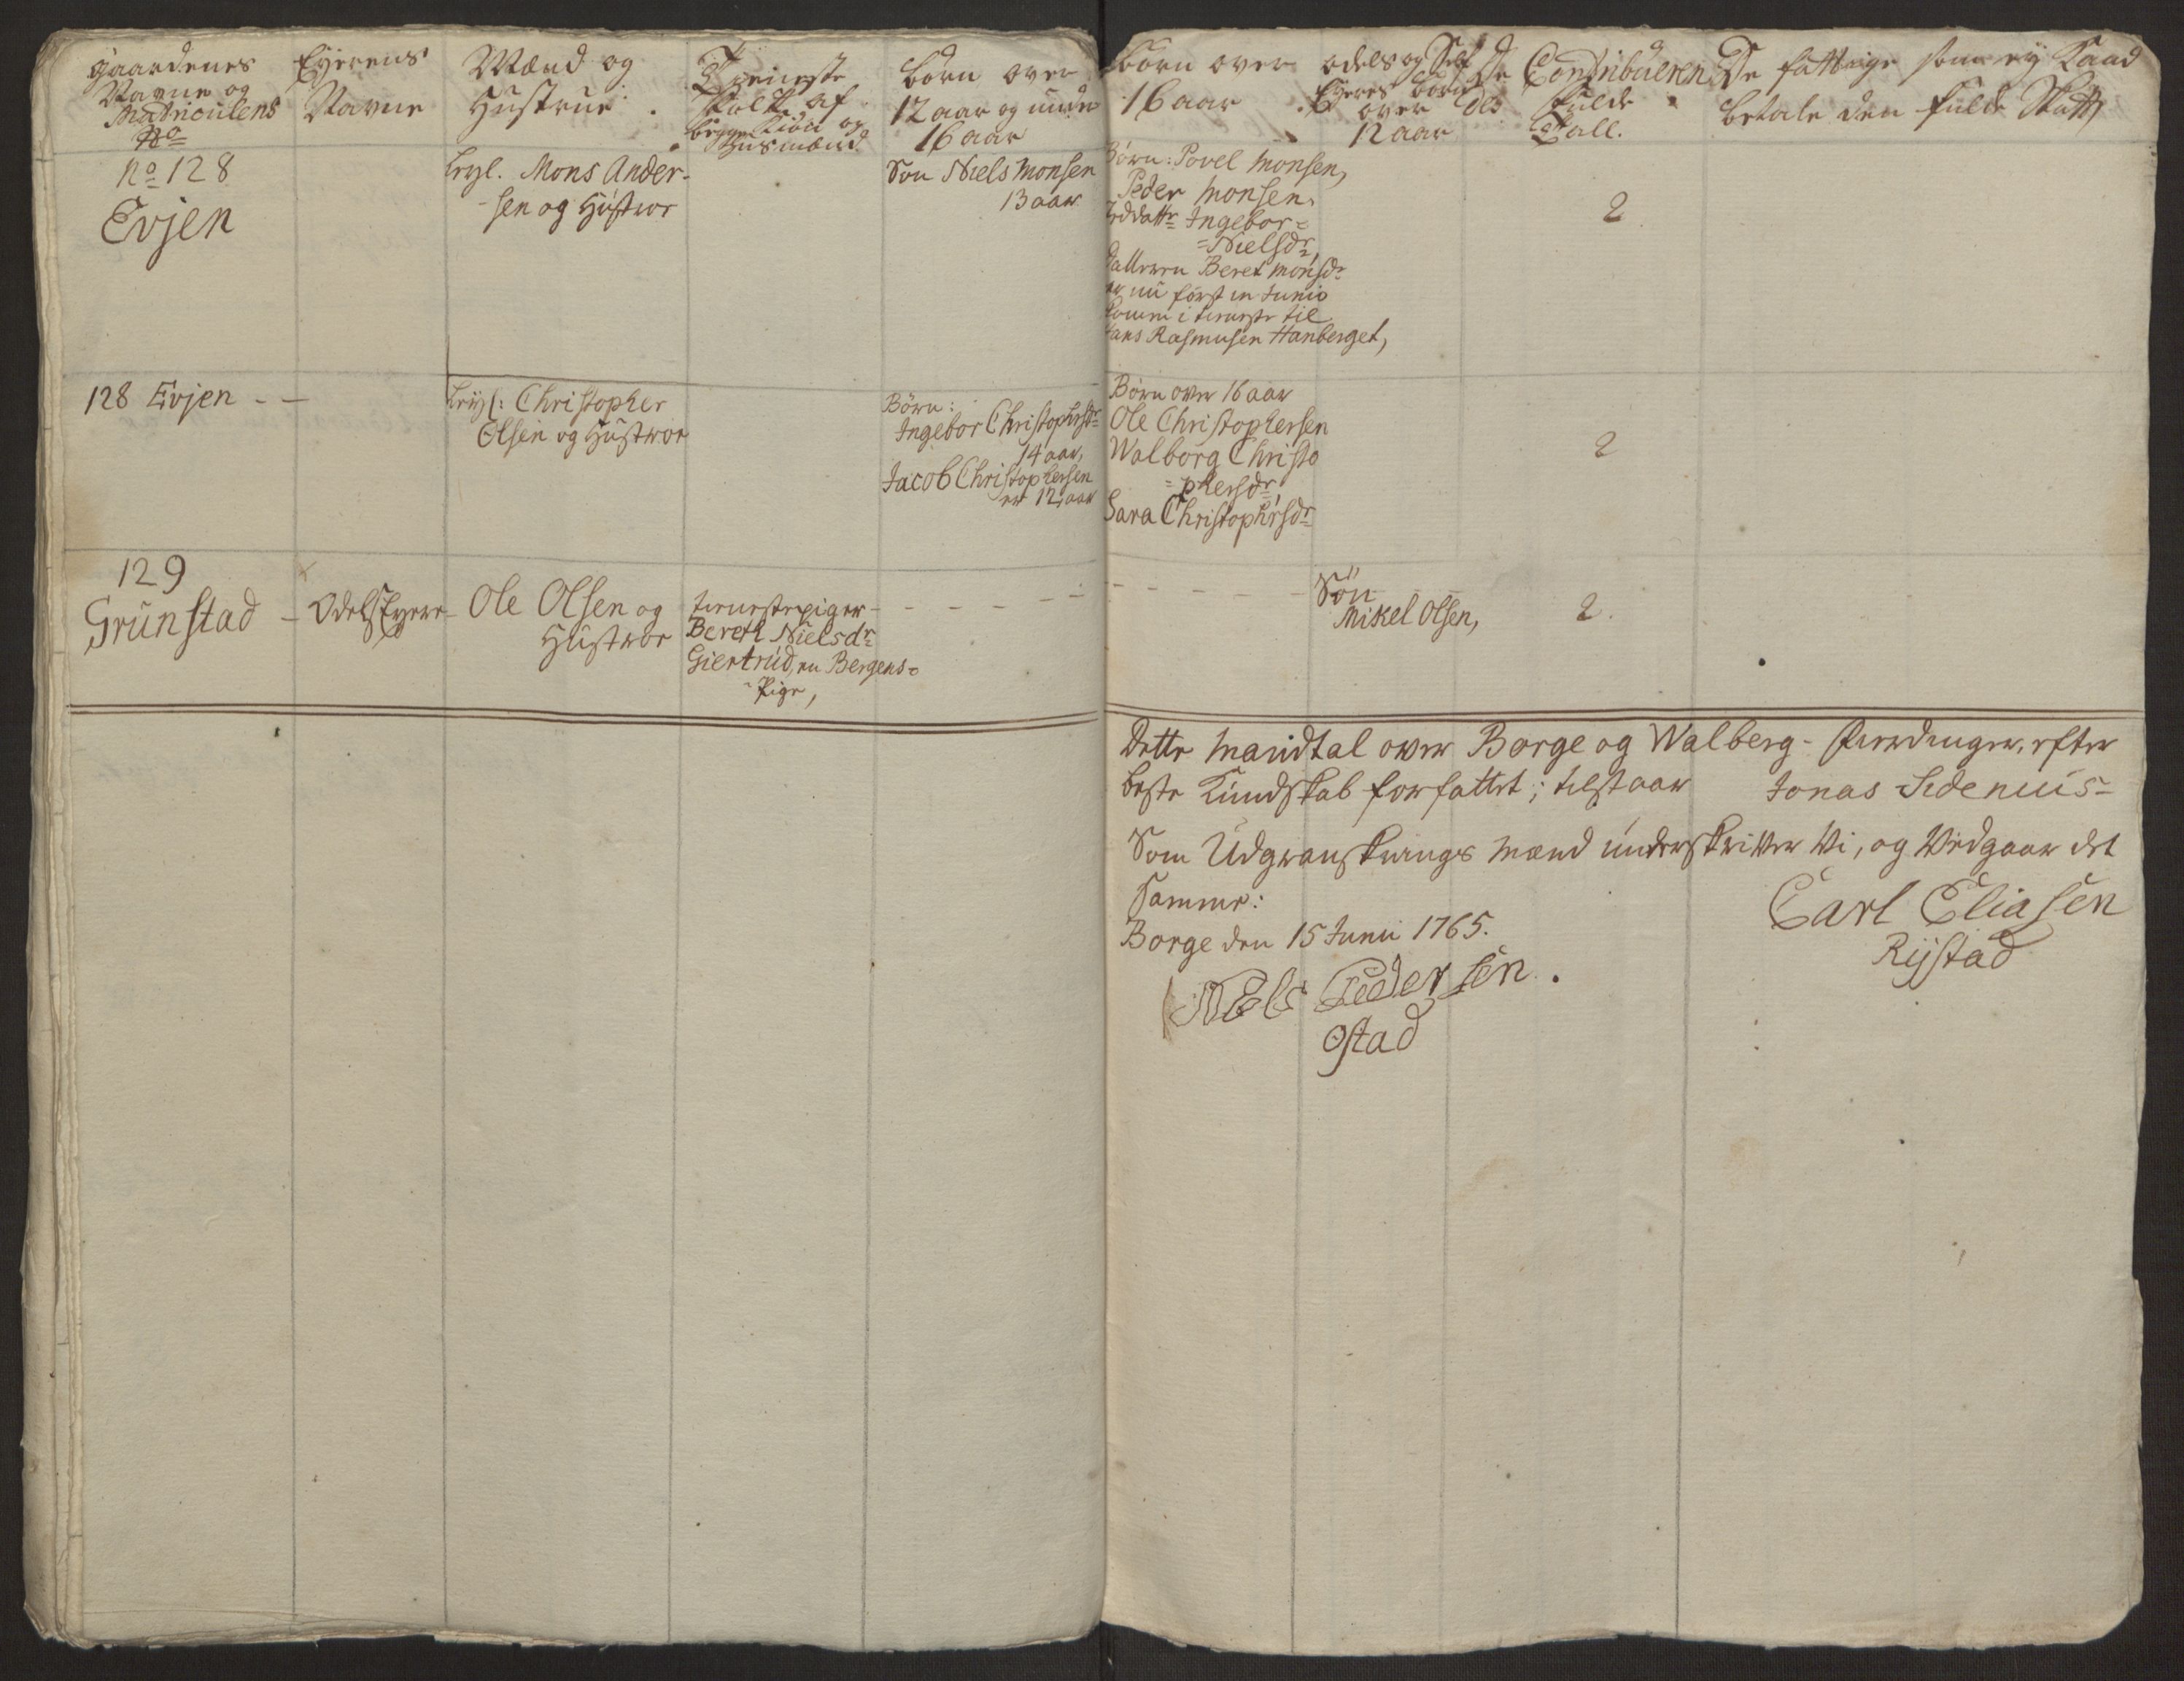 Gaardenes
Navne og
Matriculens
No
Eyerens
Navne
Mænd og
Hustrue.
Tieneste
Folk af
begge Kiøn og
Huusmænd
børn over
12 aar og under
16 aar
børn over
16 aar
odels og Self
Eyeres børn
over
12 aar
De Contribuerendes
fulde
Tall.
De fattige som ey Kand
betale den fulde Skatt
No 128
Evjen
Leyl. Mons Ander-
-sen og Hustroe
Søn Niels Monsen
13 aar
Børn: Povel Monsen,
Peder Monsen.
Ingebor=
=Nielsdr,
datteren Beret Monsdr
er nu først in Junio
kommen i tieneste til
Hans Rasmusen Hanberget,
2
128 Evjen - -
Leyl: Christopher
Olsen og Hustroe
Børn:
Ingebor Christophsdr
14 aar,
Jacob Christophersen
er 12 aar
Børn over 16 aar
Ole Christophersen
Walborg Christo
=phersdr,
Sara Christophrsdr
2
129
Grunstad - OdelsEyere - Ole Olsen og
Hustroe
tienestepiger -
Bereth Nielsdr
Giertrud, en Bergens=
-Pige,
Søn
Mikel Olsen,
2.
Dette Mandtal over Borge og Walberg - fierdinger, efter
beste Kundskab forfattet; tilstaar Jonas Sidenius
Som Udgransknings Mænd underskriver Vi, og Vedgaar det
samme:
Borge den 15 Junii 1765.
Carl Eliasen
Rystad
Nels Pedersen.
Ostad